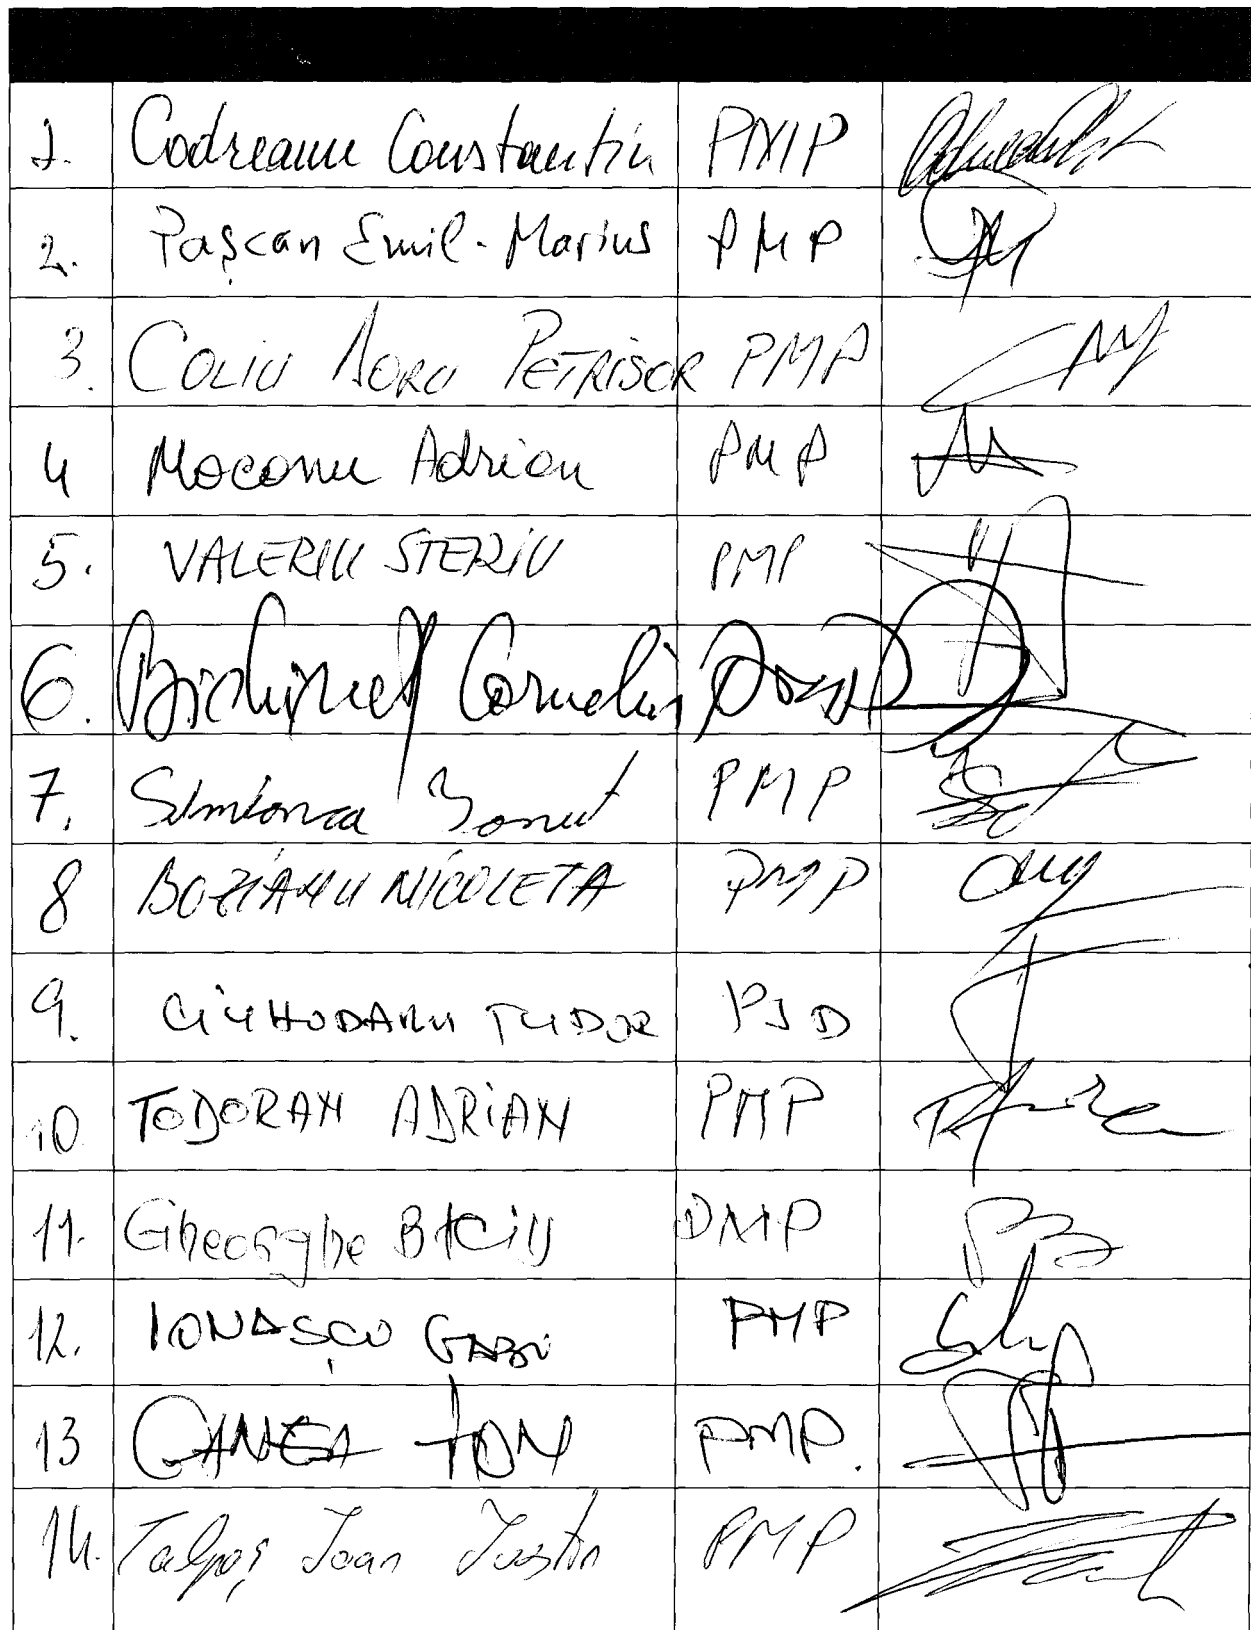 1. Codreanu Constantin PMP
2. Pașcan Emil-Marius PMP
3. COLIU DORU PETRISOR PMP
4 Mocanu Adrian PMP
5. VALERIU STERIU PMP
6. Bichineț Corneliu
7. Simionca Ionut PMP
8 BOZIANU NICOLETA PMP
9. CIUHODARU TUDOR PSD
10 TODORAN ADRIAN PMP
11. Gheorghe BACIU PMP
12. IONAȘCU GABI PMP
13 CANEA ION PMP.
14. Talpoș Ioan Iustin PMP